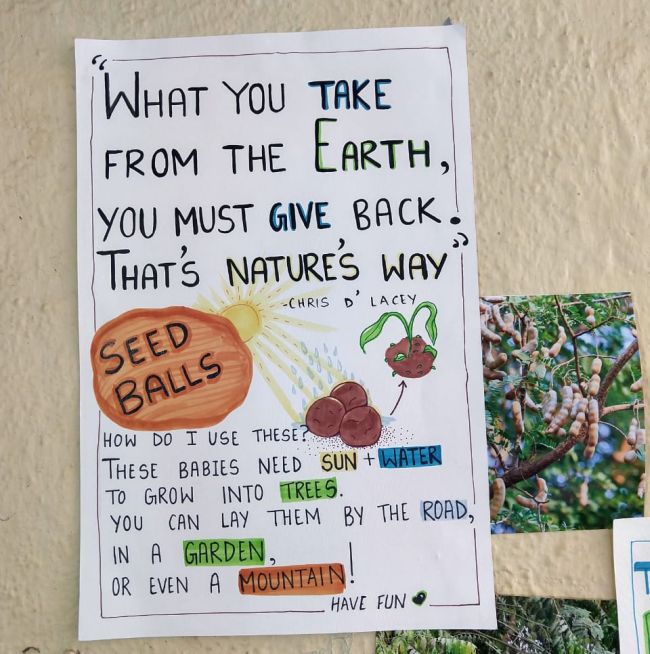 “WHAT YOU TAKE
FROM THE EARTH,
YOU MUST GIVE BACK.
THAT'S NATURE'S WAY”
-CHRIS D'LACEY
SEED
BALLS
HOW DO I USE THESE?
THESE BABIES NEED SUN + WATER
TO GROW INTO TREES.
YOU CAN LAY THEM BY THE ROAD,
IN A GARDEN,
OR EVEN A MOUNTAIN!
HAVE FUN